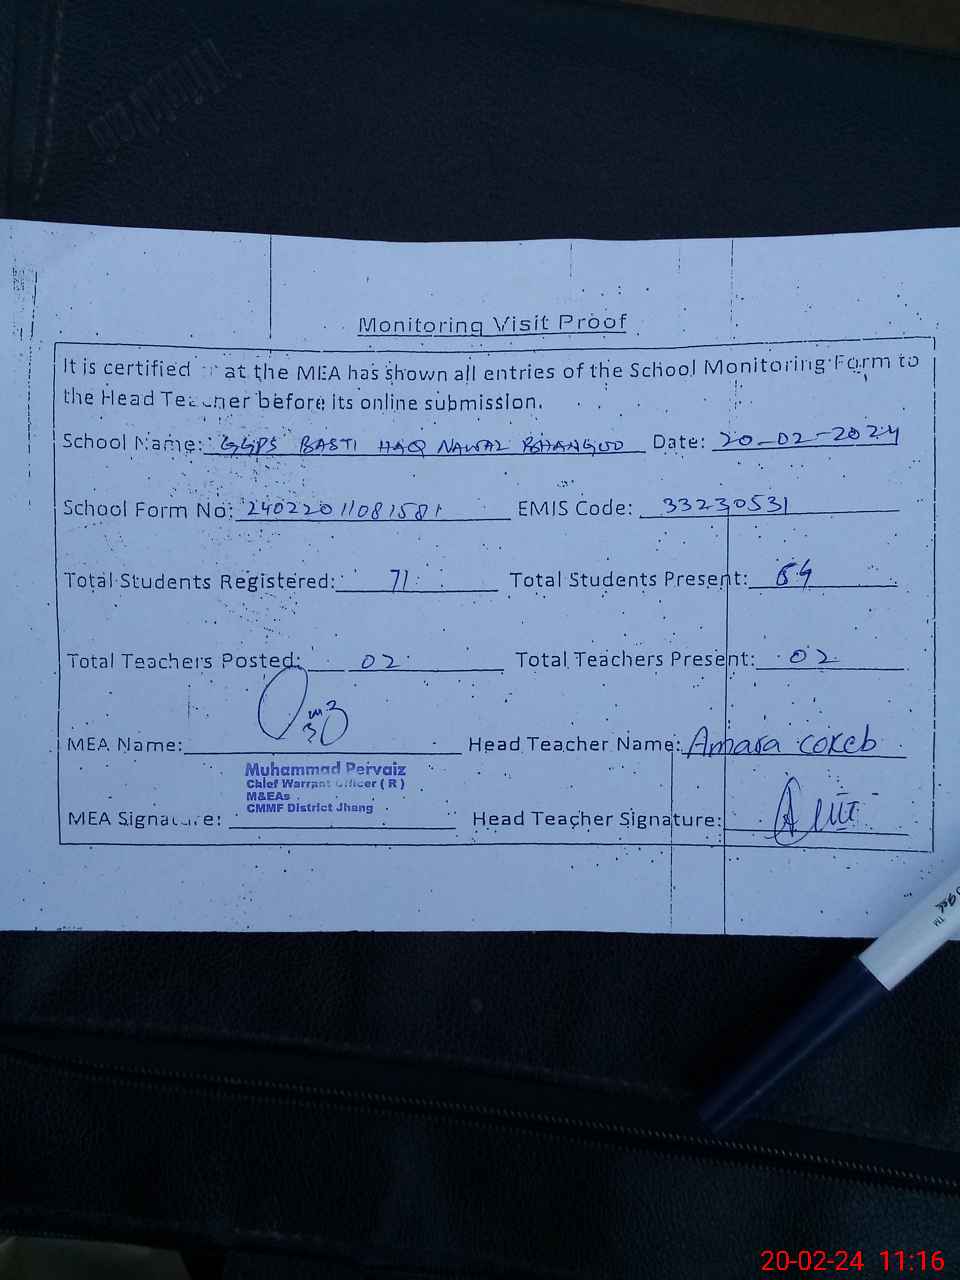 Monitoring Visit Proof
It is certified at the MEA has shown all entries of the School Monitoring Form to
the Head Teacher before its online submission.
School Name: GGPS BASTI HAQ NAWAZ BHANGOO Date: 20-02-2024
School Form No: 24022011081581 EMIS Code: 33230531
Total Students Registered: 71 Total Students Present: 64
Total Teachers Posted: 02 Total Teachers Present: 02
MEA Name: Head Teacher Name: Amara
Muhammad Pervaiz
Chief Warrant Officer ( R )
M&EAs
CMMF District Jhang
MEA Signature: Head Teacher Signature:
20-02-24 11:16